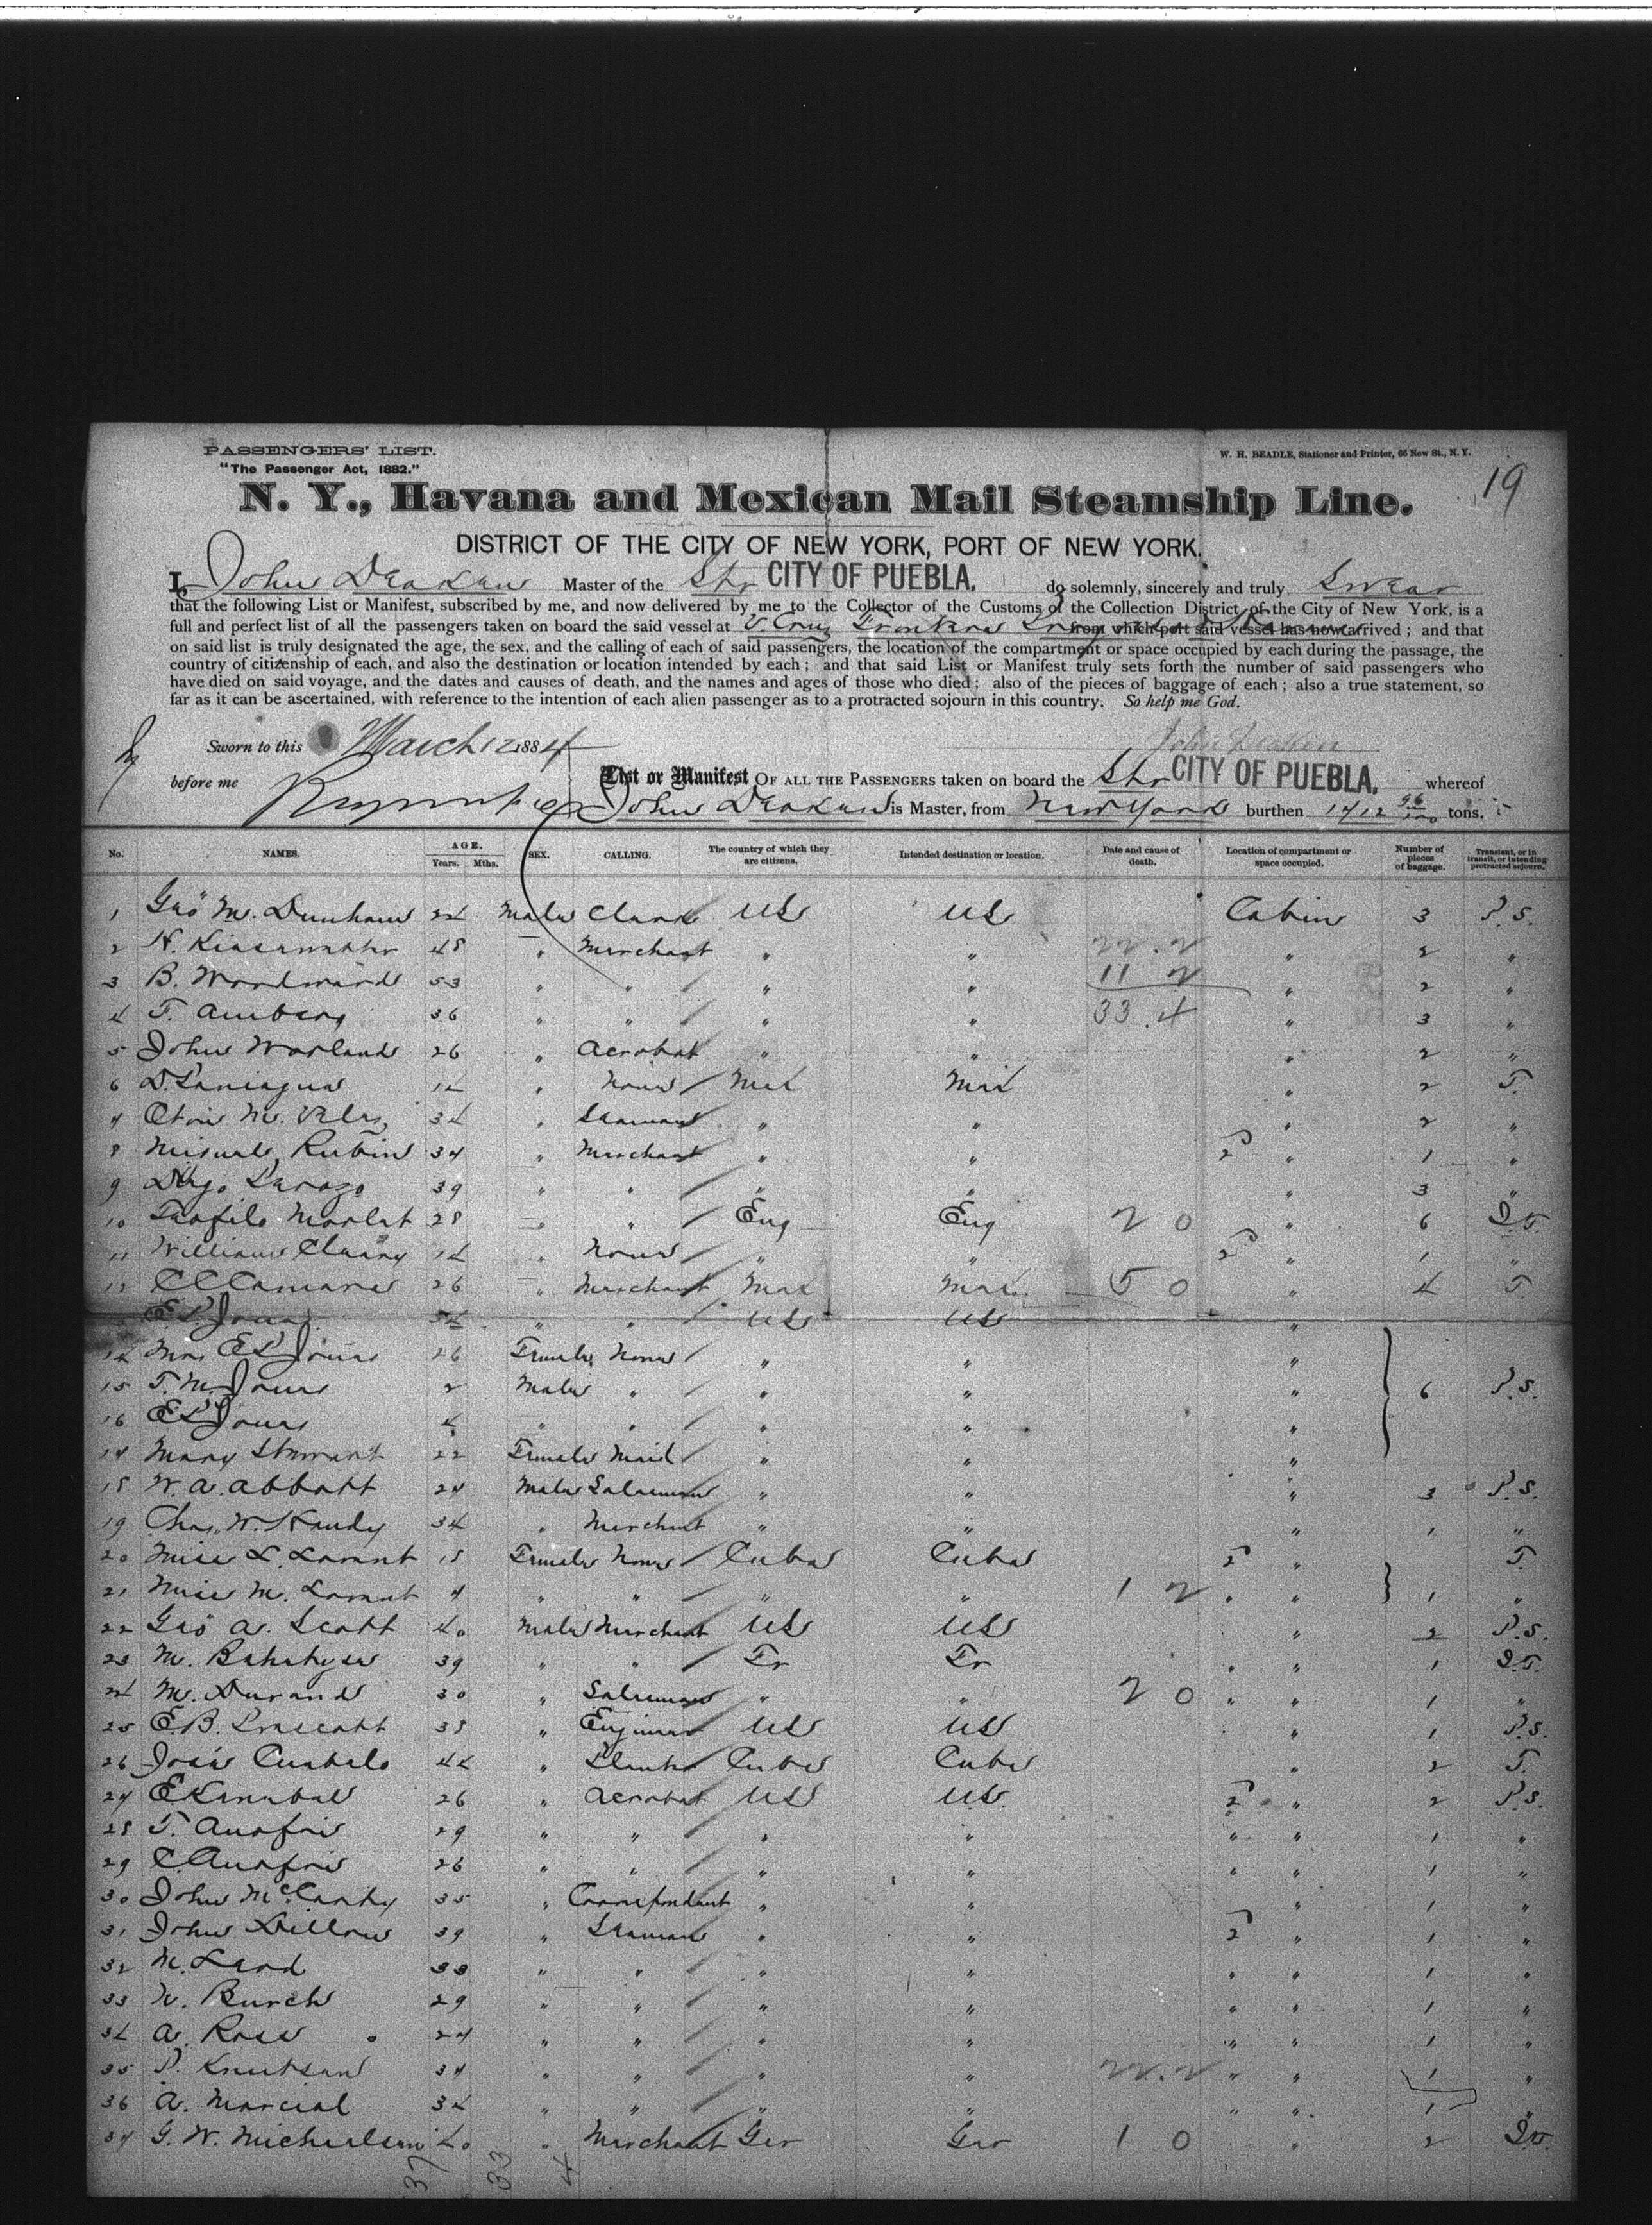 PASSENGERS' LIST.
"The Passenger Act, 1882."
W. H. BEADLE, Stationer and Printer, 66 New St., N. Y.
19
N. Y., Havana and Mexican Mail Steamship Line.
DISTRICT OF THE CITY OF NEW YORK, PORT OF NEW YORK.
I, John Deaken Master of the Str CITY OF PUEBLA. do solemnly, sincerely and truly Swear
that the following List or Manifest, subscribed by me, and now delivered by me to the Collector of the Customs of the Collection District of the City of New York, is a
full and perfect list of all the passengers taken on board the said vessel at V. Cruz Frontera from which port said vessel has now arrived ; and that
on said list is truly designated the age, the sex, and the calling of each of said passengers, the location of the compartment or space occupied by each during the passage, the
country of citizenship of each, and also the destination or location intended by each ; and that said List or Manifest truly sets forth the number of said passengers who
have died on said voyage, and the dates and causes of death, and the names and ages of those who died ; also of the pieces of baggage of each ; also a true statement, so
far as it can be ascertained, with reference to the intention of each alien passenger as to a protracted sojourn in this country. So help me God.
Sworn to this March 12 1884 John Deaken
before me
List or Manifest OF ALL THE PASSENGERS taken on board the Str CITY OF PUEBLA. whereof
John Deaken is Master, from New York burthen 1712 56/100 tons.
No. NAMES. AGE. Years. Mths. SEX. CALLING. The country of which they are citizens. Intended destination or location. Date and cause of death. Location of compartment or space occupied. Number of pieces of baggage. Transient, or in transit, or intending protracted sojourn.
1 Geo M. Dunham 24 Male Clerk US US Cabin 3 P.S.
2 H. 48 " Merchant " " 22.2 " 2 "
3 B. Woodward 53 " " " " 11 2 " 2 "
4 T. Amberg 36 " " " " 33.4 " 3 "
5 John Worland 26 " Acrobat " " " 2 "
6 D. Paniagua 14 " None Mex Mex " 2 T.
7 M. Velez 34 " Seaman " " " 2 "
8 Rubin 37 " Merchant " " 2d " 1 "
9 39 " " " " " 3 "
10 Teofilo Morlet 28 " " Eng Eng 2 0 " 6 I.T.
11 William 14 " None " " 2d " 1 "
12 C C Camara 26 " Merchant Mex Mex 5 0 " 4 T.
E P Jones 34 " " US US "
14 Mrs E P Jones 26 Female None " " "
15 T. M. Jones 2 Male " " " " 6 P.S.
16 E P Jones 4 " " " " "
17 Mary Stewart 22 Female Maid " " "
18 W. A. Abbott 27 Male Salesman " " " 3 P.S.
19 Chas. W. Handy 34 " Merchant " " " 1 "
20 Miss L. 18 Female None Cuba Cuba 2 " T.
21 Miss M. 7 " " " " 1 2 " " 1 "
22 Geo A. Scott 40 Male Merchant US US " 2 P.S.
23 M. 39 " " Fr Fr " " 1 I.T.
24 M. Durand 30 " Salesman " " 2 0 " " 1 "
25 E. B. Prescott 38 " Engineer US US " 1 P.S.
26 José 44 " Planter Cuba Cuba " 2 T.
27 E. 26 " Acrobat US US 2 " 2 P.S.
28 T. 29 " " " " " " 1 "
29 C. 26 " " " " " " 1 "
30 John McCarthy 35 " Correspondent " " " 1 "
31 John Dillon 39 " Seaman " " 2 " 1 "
32 M. Land 33 " " " " " " 1 "
33 N. Burch 29 " " " " " " 1 "
34 A. Ross 27 " " " " " " 1 "
35 P. Knutson 37 " " " " 22.2 " " 1 "
36 A. Marcial 34 " " " " " " 1 "
37 G. W. Michelsen 40 " Merchant Ger Ger 1 0 " 2 I.T.
37 33 4